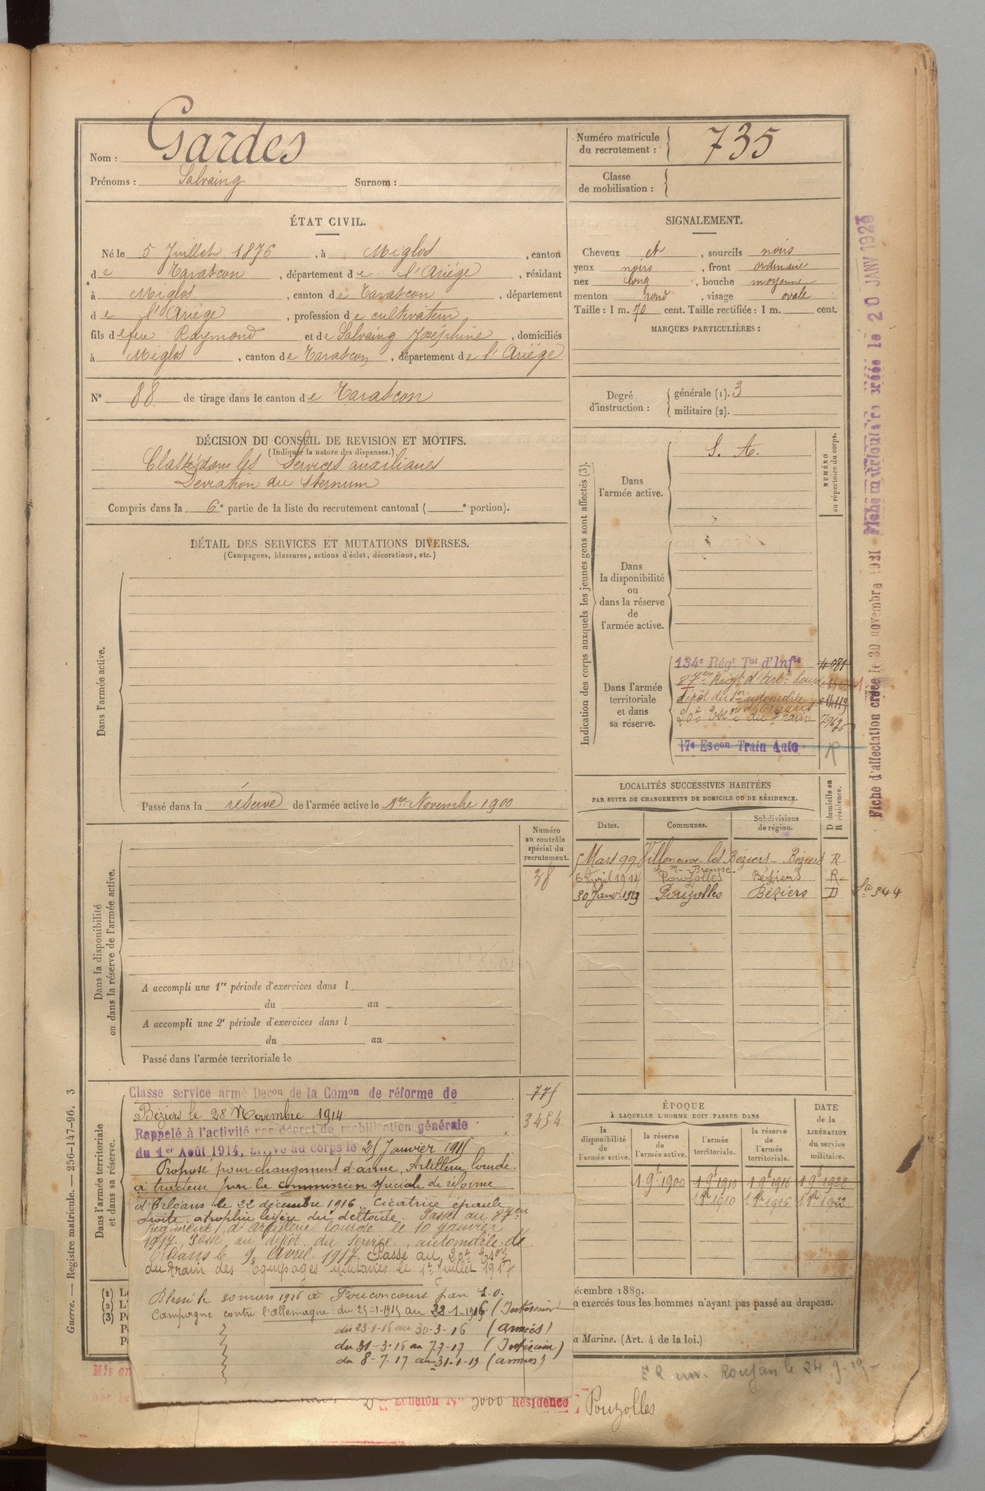 Nom : Gardes
Prénoms : Salvaing Surnom :
Numéro matricule du recrutement : 735
Classe de mobilisation :
ÉTAT CIVIL.
Né le 5 Juillet 1876, à Miglos, canton
de Tarascon, département de l'Ariège, résidant
à Miglos, canton de Tarascon, département
de l'Ariège, profession de cultivateur,
fils de feu Raymond et de Salvaing Joséphine, domiciliés
à Miglos, canton de Tarascon, département de l'Ariège
N° 88 de tirage dans le canton de Tarascon
SIGNALEMENT.
Cheveux et, sourcils noirs
yeux noirs, front ordinaire
nez long, bouche moyenne
menton rond, visage ovale
Taille : 1 m. 70 cent. Taille rectifiée : 1 m. cent.
MARQUES PARTICULIÈRES :
Degré d'instruction : générale (1). 3
militaire (2).
DÉCISION DU CONSEIL DE REVISION ET MOTIFS.
(Indiquer la nature des dispenses.)
Classé dans les Services auxiliaires
Déviation du Sternum
Compris dans la 6e partie de la liste du recrutement cantonal ( e portion).
DÉTAIL DES SERVICES ET MUTATIONS DIVERSES.
(Campagnes, blessures, actions d'éclat, décorations, etc.)
Dans l'armée active.
Passé dans la réserve de l'armée active le 1er Novembre 1900
Indication des corps auxquels les jeunes gens sont affectés (3).
NUMÉRO au répertoire du corps.
Dans l'armée active.
S. A.
Dans la disponibilité ou dans la réserve de l'armée active.
Dans l'armée territoriale et dans sa réserve.
134e Régt Tal d'Infie
87e Régt d'Art. lourde
20e du Train
17e Escon Train Auto R
Fiche d'affectation créée le 30 novembre 1921
Fiche matriculaire créée le 20 JANV 1923
LOCALITÉS SUCCESSIVES HABITÉES
PAR SUITE DE CHANGEMENTS DE DOMICILE OU DE RÉSIDENCE.
Dates. Communes. Subdivisions de région. D domicile ou R résidence.
5 Mars 99 Villeneuve les Béziers Béziers R
6 avril 1914 Pouzolles Béziers R
30 Janv. 1923 Pouzolles Béziers D
344
Numéro au contrôle spécial du recrutement.
38
Dans la disponibilité ou dans la réserve de l'armée active.
A accompli une 1re période d'exercices dans l
du au
A accompli une 2e période d'exercices dans l
du au
Passé dans l'armée territoriale le
Dans l'armée territoriale et dans sa réserve.
Classe service armé Décon de la Comon de réforme de
Béziers le 28 Novembre 1914
Rappelé à l'activité par décret de mobilisation générale
du 1er Août 1914, arrivé au corps le 25 Janvier 1915
Proposé pour changement d'arme, Artillerie lourde
à tracteur par la commission spéciale de réforme
d'Orléans le 22 décembre 1916. Cicatrice épaule
droite, atrophie légère du deltoïde. Passé au 87eme
régiment d'artillerie lourde le 10 janvier
1917. Passé au dépôt du service automobile de
Orléans le 9 Avril 1917. Passé au 20e Escon
du train des Equipages militaires le 1er juillet 1917
Campagne contre l'allemagne : du 25-1-1915 au 22-1-1916 (Intérieur
du 23-1-16 au 30-3-16 (armées)
du 31-3-16 au 7-7-17 (Intérieur)
du 8-7-17 au 31-1-19 (armées)
775
3484
ÉPOQUE
À LAQUELLE L'HOMME DOIT PASSER DANS
la disponibilité de l'armée active. la réserve de l'armée active. l'armée territoriale. la réserve de l'armée territoriale.
DATE de la LIBÉRATION du service militaire.
1 9e 1900 1 9e 1910 1 9e 1916 1 9e 1922
Guerre. — Registre matricule. — 256-147-96. 3
(1)
(2)
(3)
décembre 1889.
n exercés tous les hommes n'ayant pas passé au drapeau.
a Marine. (Art. 4 de la loi.)
Roujan le 24-9-19
Mis en
Echelon N° 5000 Résidence Pouzolles